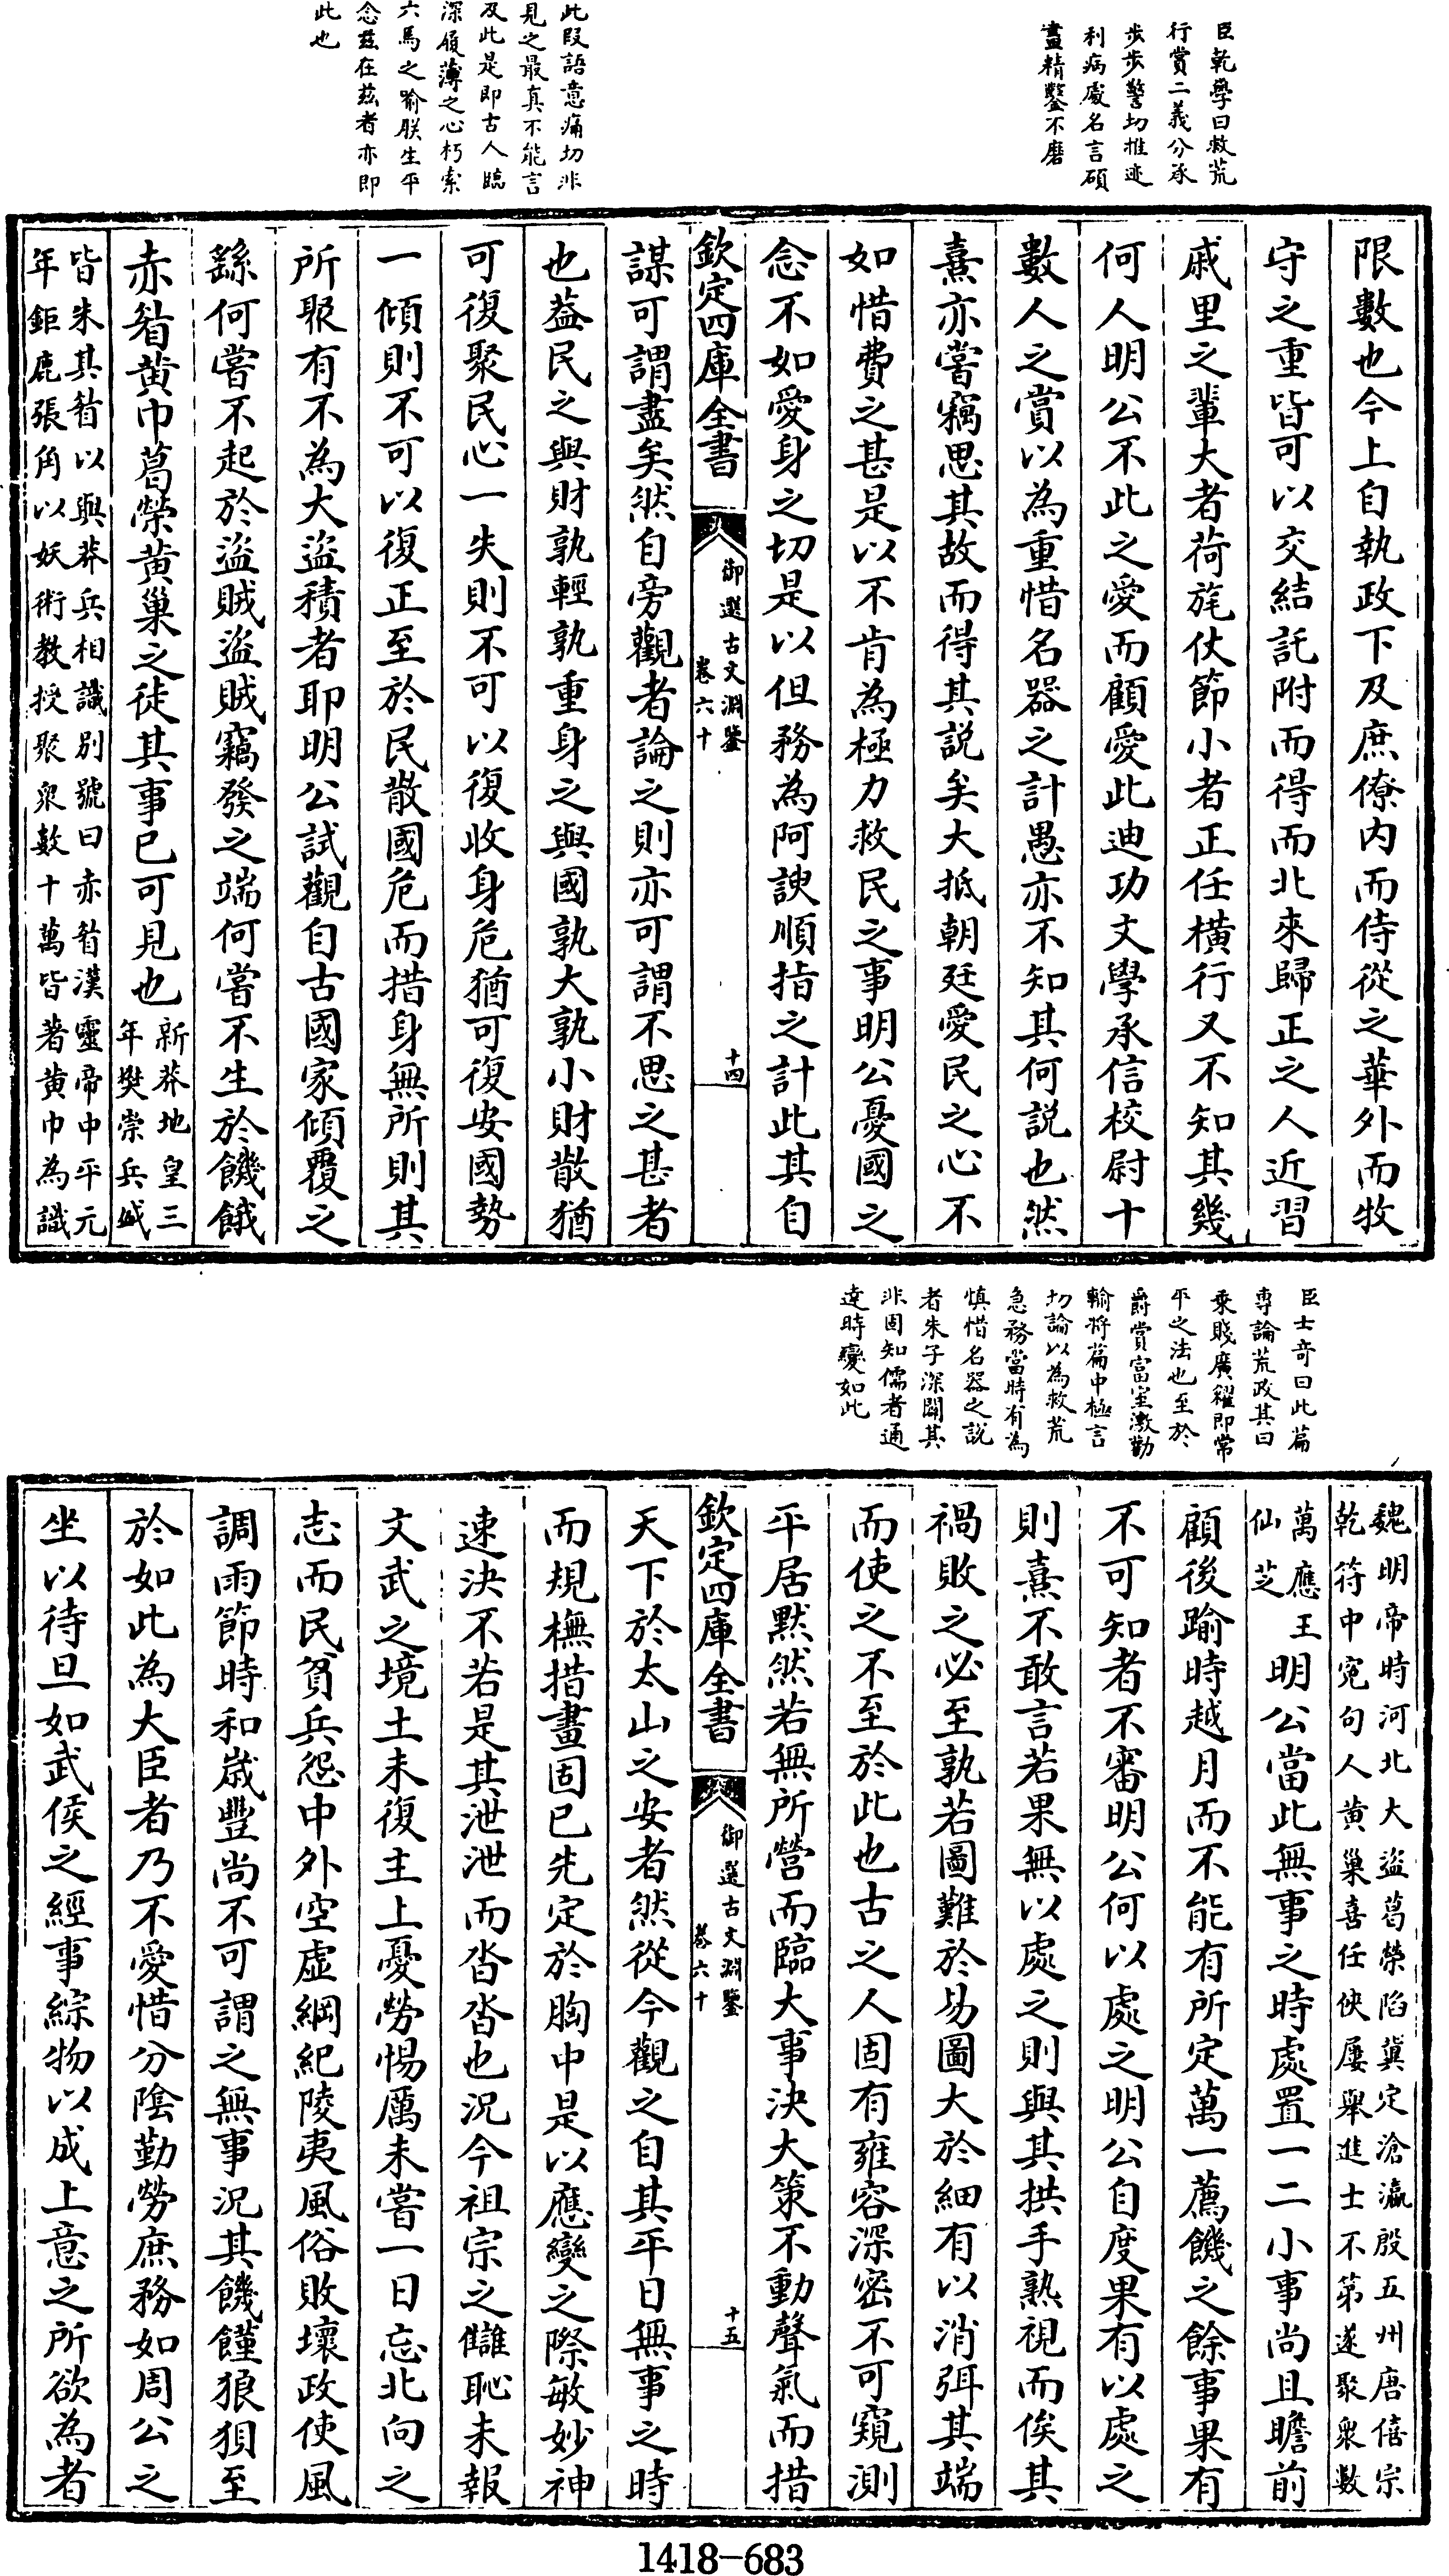 臣乾學曰救荒
行賞二義分承
步步警切推迹
利病處名言碩
畫精鑿不磨
此段語意痛切非
見之最真不能言
及此是即古人臨
深履薄之心朽索
六馬之喻朕生平
念茲在茲者亦即
此也
限數也今上自執政下及庶僚内而侍從之華外而牧
守之重皆可以交結託附而得而北來歸正之人近習
戚里之輩大者荷旄仗節小者正任橫行又不知其幾
何人明公不此之愛而顧愛此迪功文學承信校尉十
數人之賞以為重惜名器之計愚亦不知其何説也然
熹亦嘗竊思其故而得其説矣大抵朝廷愛民之心不
如惜費之甚是以不肯為極力救民之事明公憂國之
念不如愛身之切是以但務為阿諛順指之計此其自
欽定四庫全書
御選古文淵鑒
卷六十
十四
謀可謂盡矣然自旁觀者論之則亦可謂不思之甚者
也葢民之與財孰輕孰重身之與國孰大孰小財散猶
可復聚民心一失則不可以復收身危猶可復安國勢
一傾則不可以復正至於民散國危而措身無所則其
所聚有不為大盜積者耶明公試觀自古國家傾覆之
繇何嘗不起於盜賊盜賊竊發之端何嘗不生於饑餓
赤眉黄巾葛榮黄巢之徒其事已可見也
新莽地皇三
年樊崇兵起
皆朱其眉以與莽兵相識别號曰赤眉漢靈帝中平元
年鉅鹿張角以妖術教授聚衆數十萬皆著黄巾為識
臣士奇曰此篇
專論荒政其曰
乘賤廣糴即常
平之法也至於
爵賞富室激勸
輸將篇中極言
切論以為救荒
急務當時有為
慎惜名器之説
者朱子深闢其
非固知儒者通
達時變如此
魏明帝時河北大盜葛榮陷冀定滄瀛殷五州唐僖宗
乾符中寃句人黄巢喜任俠屢舉進士不第遂聚衆數
萬應王
仙芝
明公當此無事之時處置一二小事尚且瞻前
顧後踰時越月而不能有所定萬一薦饑之餘事果有
不可知者不審明公何以處之明公自度果有以處之
則熹不敢言若果無以處之則與其拱手熟視而俟其
禍敗之必至孰若圖難於易圖大於細有以消弭其端
而使之不至於此也古之人固有雍容深密不可窺測
平居黙然若無所營而臨大事決大策不動聲氣而措
欽定四庫全書
御選古文淵鑒
卷六十
十五
天下於太山之安者然從今觀之自其平日無事之時
而規橅措畫固已先定於胸中是以應變之際敏妙神
速決不若是其泄泄而沓沓也况今祖宗之讎恥未報
文武之境土未復主上憂勞惕厲未嘗一日忘北向之
志而民貧兵怨中外空虛綱紀陵夷風俗敗壞政使風
調雨節時和歲豐尚不可謂之無事况其饑饉狼狽至
於如此為大臣者乃不愛惜分陰勤勞庶務如周公之
坐以待旦如武侯之經事綜物以成上意之所欲為者
1418-683